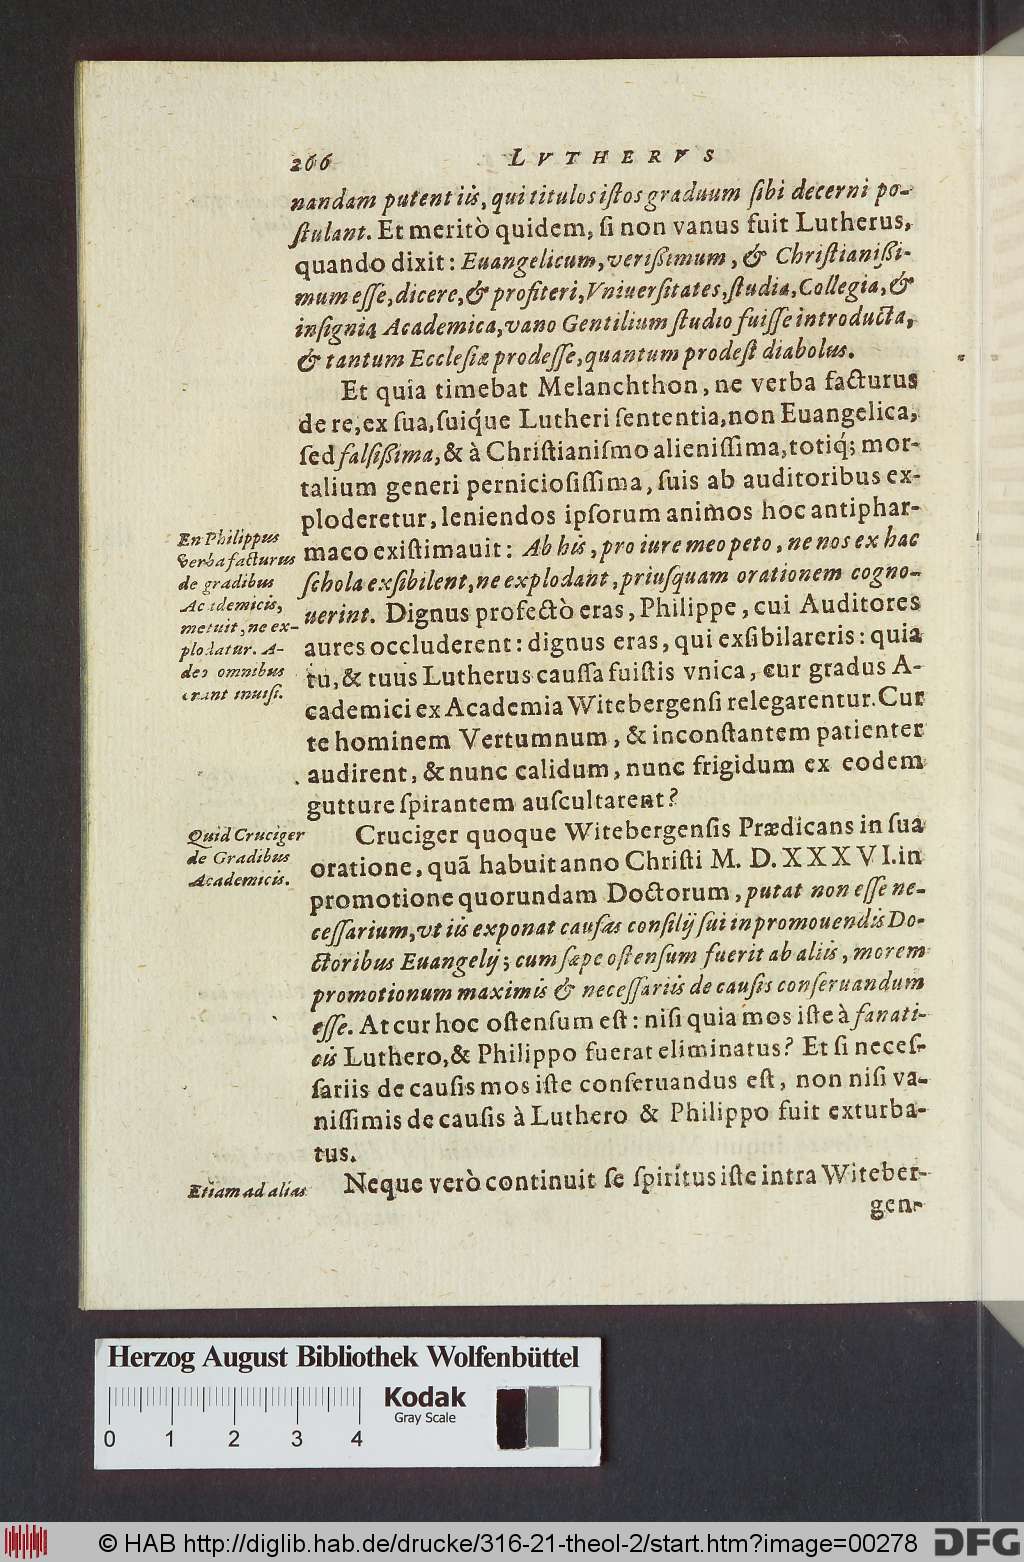 266 LVTHERVS
nandam putent iis, qui titulos iſtos graduum ſibi decerni po-
ſtulant. Et meritò quidem, ſi non vanus fuit Lutherus,
quando dixit: Euangelicum, verißimum, & Chriſtianißi-
mum eſſe, dicere, & profiteri, Vniuerſitates, ſtudia, Collegia, &
inſignia Academica, vano Gentilium ſtudio fuiſſe introducta,
& tantum Eccleſiæ prodeſſe, quantum prodeſt diabolus.
Et quia timebat Melanchthon, ne verba facturus
de re, ex ſua, ſuiq́ue Lutheri ſententia, non Euangelica,
ſed falſißima, & à Chriſtianiſmo alieniſſima, totiq́; mor-
talium generi pernicioſiſſima, ſuis ab auditoribus ex-
ploderetur, leniendos ipſorum animos hoc antiphar-
maco exiſtimauit: Ab his, pro iure meo peto, ne nos ex hac
ſchola exſibilent, ne explodant, priuſquam orationem cogno-
uerint. Dignus profectò eras, Philippe, cui Auditores
aures occluderent: dignus eras, qui exſibilareris: quia
tu, & tuus Lutherus cauſſa fuiſtis vnica, cur gradus A-
cademici ex Academia Witebergenſi relegarentur. Cur
te hominem Vertumnum, & inconſtantem patienter
audirent, & nunc calidum, nunc frigidum ex eodem
gutture ſpirantem auſcultarent?
En Philippus
verba facturus
de gradibus
Academicis,
metuit, ne ex-
plodatur. A-
deo omnibus
erant inuiſi.
Cruciger quoque Witebergenſis Prædicans in ſua
oratione, quã habuit anno Chriſti M. D. XXXVI. in
promotione quorundam Doctorum, putat non eſſe ne-
ceſſarium, vt iis exponat cauſas conſilij ſui in promouendis Do-
ctoribus Euangelij; cum ſæpe oſtenſum fuerit ab aliis, morem
promotionum maximis & neceſſariis de cauſis conſeruandum
eſſe. At cur hoc oſtenſum eſt: niſi quia mos iſte à fanati-
cis Luthero, & Philippo fuerat eliminatus? Et ſi neceſ-
ſariis de cauſis mos iſte conſeruandus eſt, non niſi va-
niſſimis de cauſis à Luthero & Philippo fuit exturba-
tus.
Quid Cruciger
de Gradibus
Academicis.
Neque verò continuit ſe ſpiritus iſte intra Witeber-
gen-
Etiam ad alias
Herzog August Bibliothek Wolfenbüttel
Kodak
Gray Scale
0 1 2 3 4
© HAB http://diglib.hab.de/drucke/316-21-theol-2/start.htm?image=00278 DFG